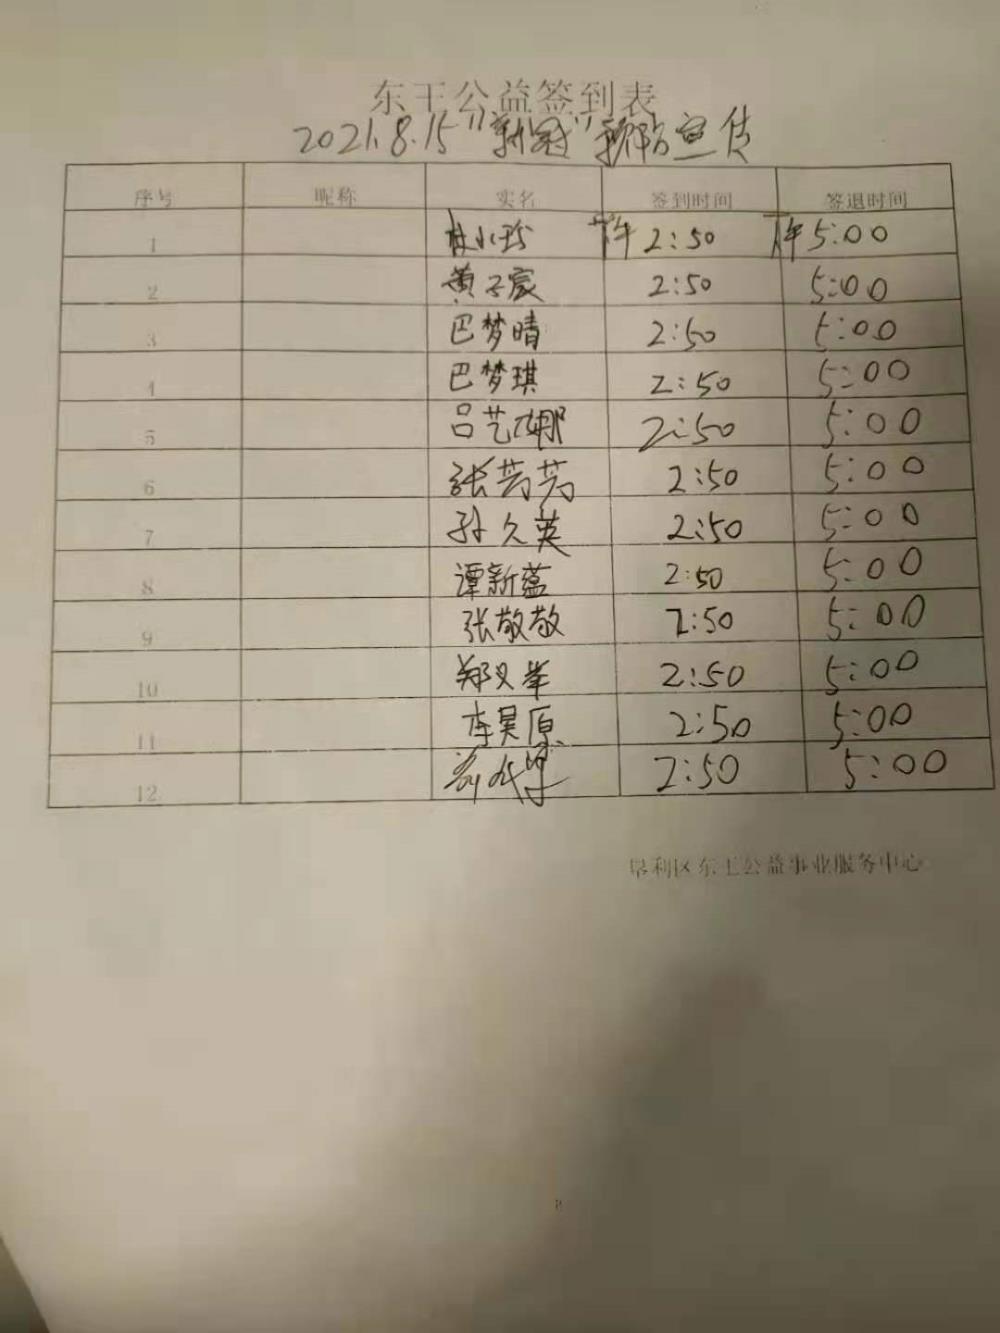 东王公益签到表
2021.8.15 "新冠" 预防宣传
序号 昵称 实名 签到时间 签退时间
1 杜小玲 下午 2:50 下午 5:00
2 黄子宸 2:50 5:00
3 巴梦晴 2:50 5:00
4 巴梦琪 2:50 5:00
5 吕艺娜 2:50 5:00
6 张芳芳 2:50 5:00
7 孙久英 2:50 5:00
8 谭新蕴 2:50 5:00
9 张敬敬 2:50 5:00
10 郑义举 2:50 5:00
11 李昊原 2:50 5:00
12 2:50 5:00
垦利区东王公益事业服务中心